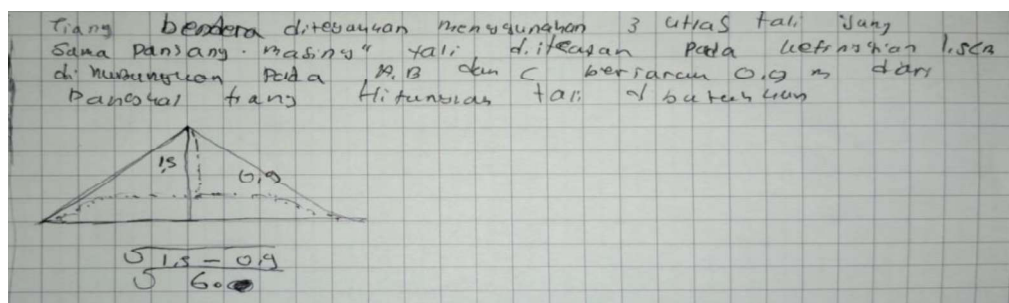 Tiang bendera ditegangkan menggunakan 3 utas tali yang
Sama Panjang. masing" tali diikatkan Pada ketinggian 1.5cm
dihubungkan Pada A.B dan C berjarak 0.9 m dari
Pangkal tiang Hitunglah tali dibutuhkan
1.5
0.9
√1.5 - 0.9
√ 6.0